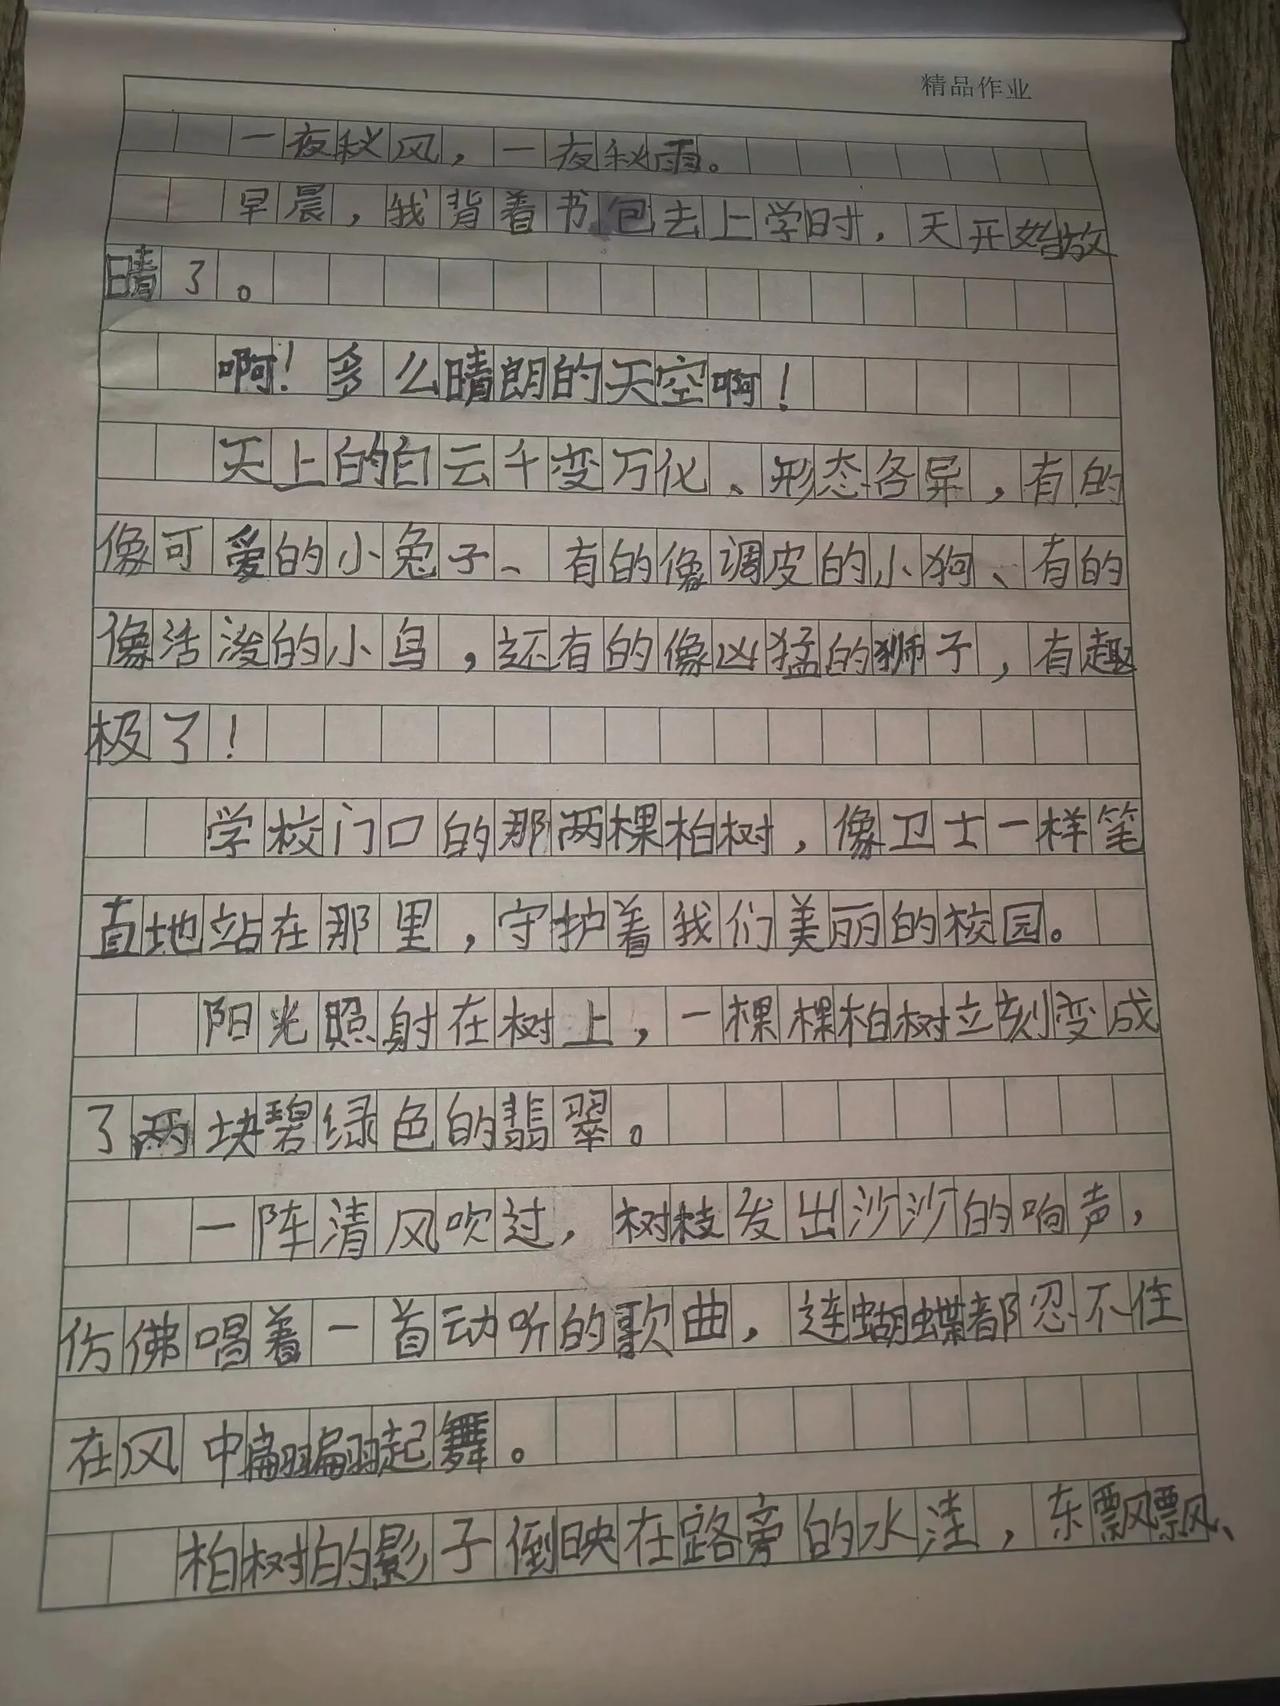 精品作业
一夜秋风，一夜秋雨。
早晨，我背着书包去上学时，天开始放
晴了。
啊！多么晴朗的天空啊！
天上的白云千变万化、形态各异，有的
像可爱的小兔子、有的像调皮的小狗、有的
像活泼的小鸟，还有的像凶猛的狮子，有趣
极了！
学校门口的那两棵柏树，像卫士一样笔
直地站在那里，守护着我们美丽的校园。
阳光照射在树上，一棵棵柏树立刻变成
了两块碧绿色的翡翠。
一阵清风吹过，树枝发出沙沙的响声，
仿佛唱着一首动听的歌曲，连蝴蝶都忍不住
在风中翩翩起舞。
柏树的影子倒映在路旁的水洼，东飘飘、